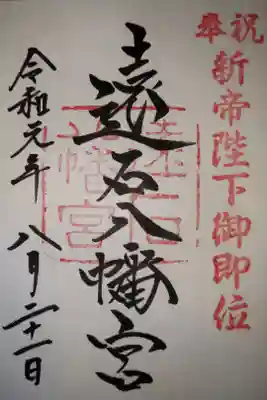 奉祝
新帝陛下御即位
遠石八幡宮
遠石
八幡宮
令和元年
八月二十一日